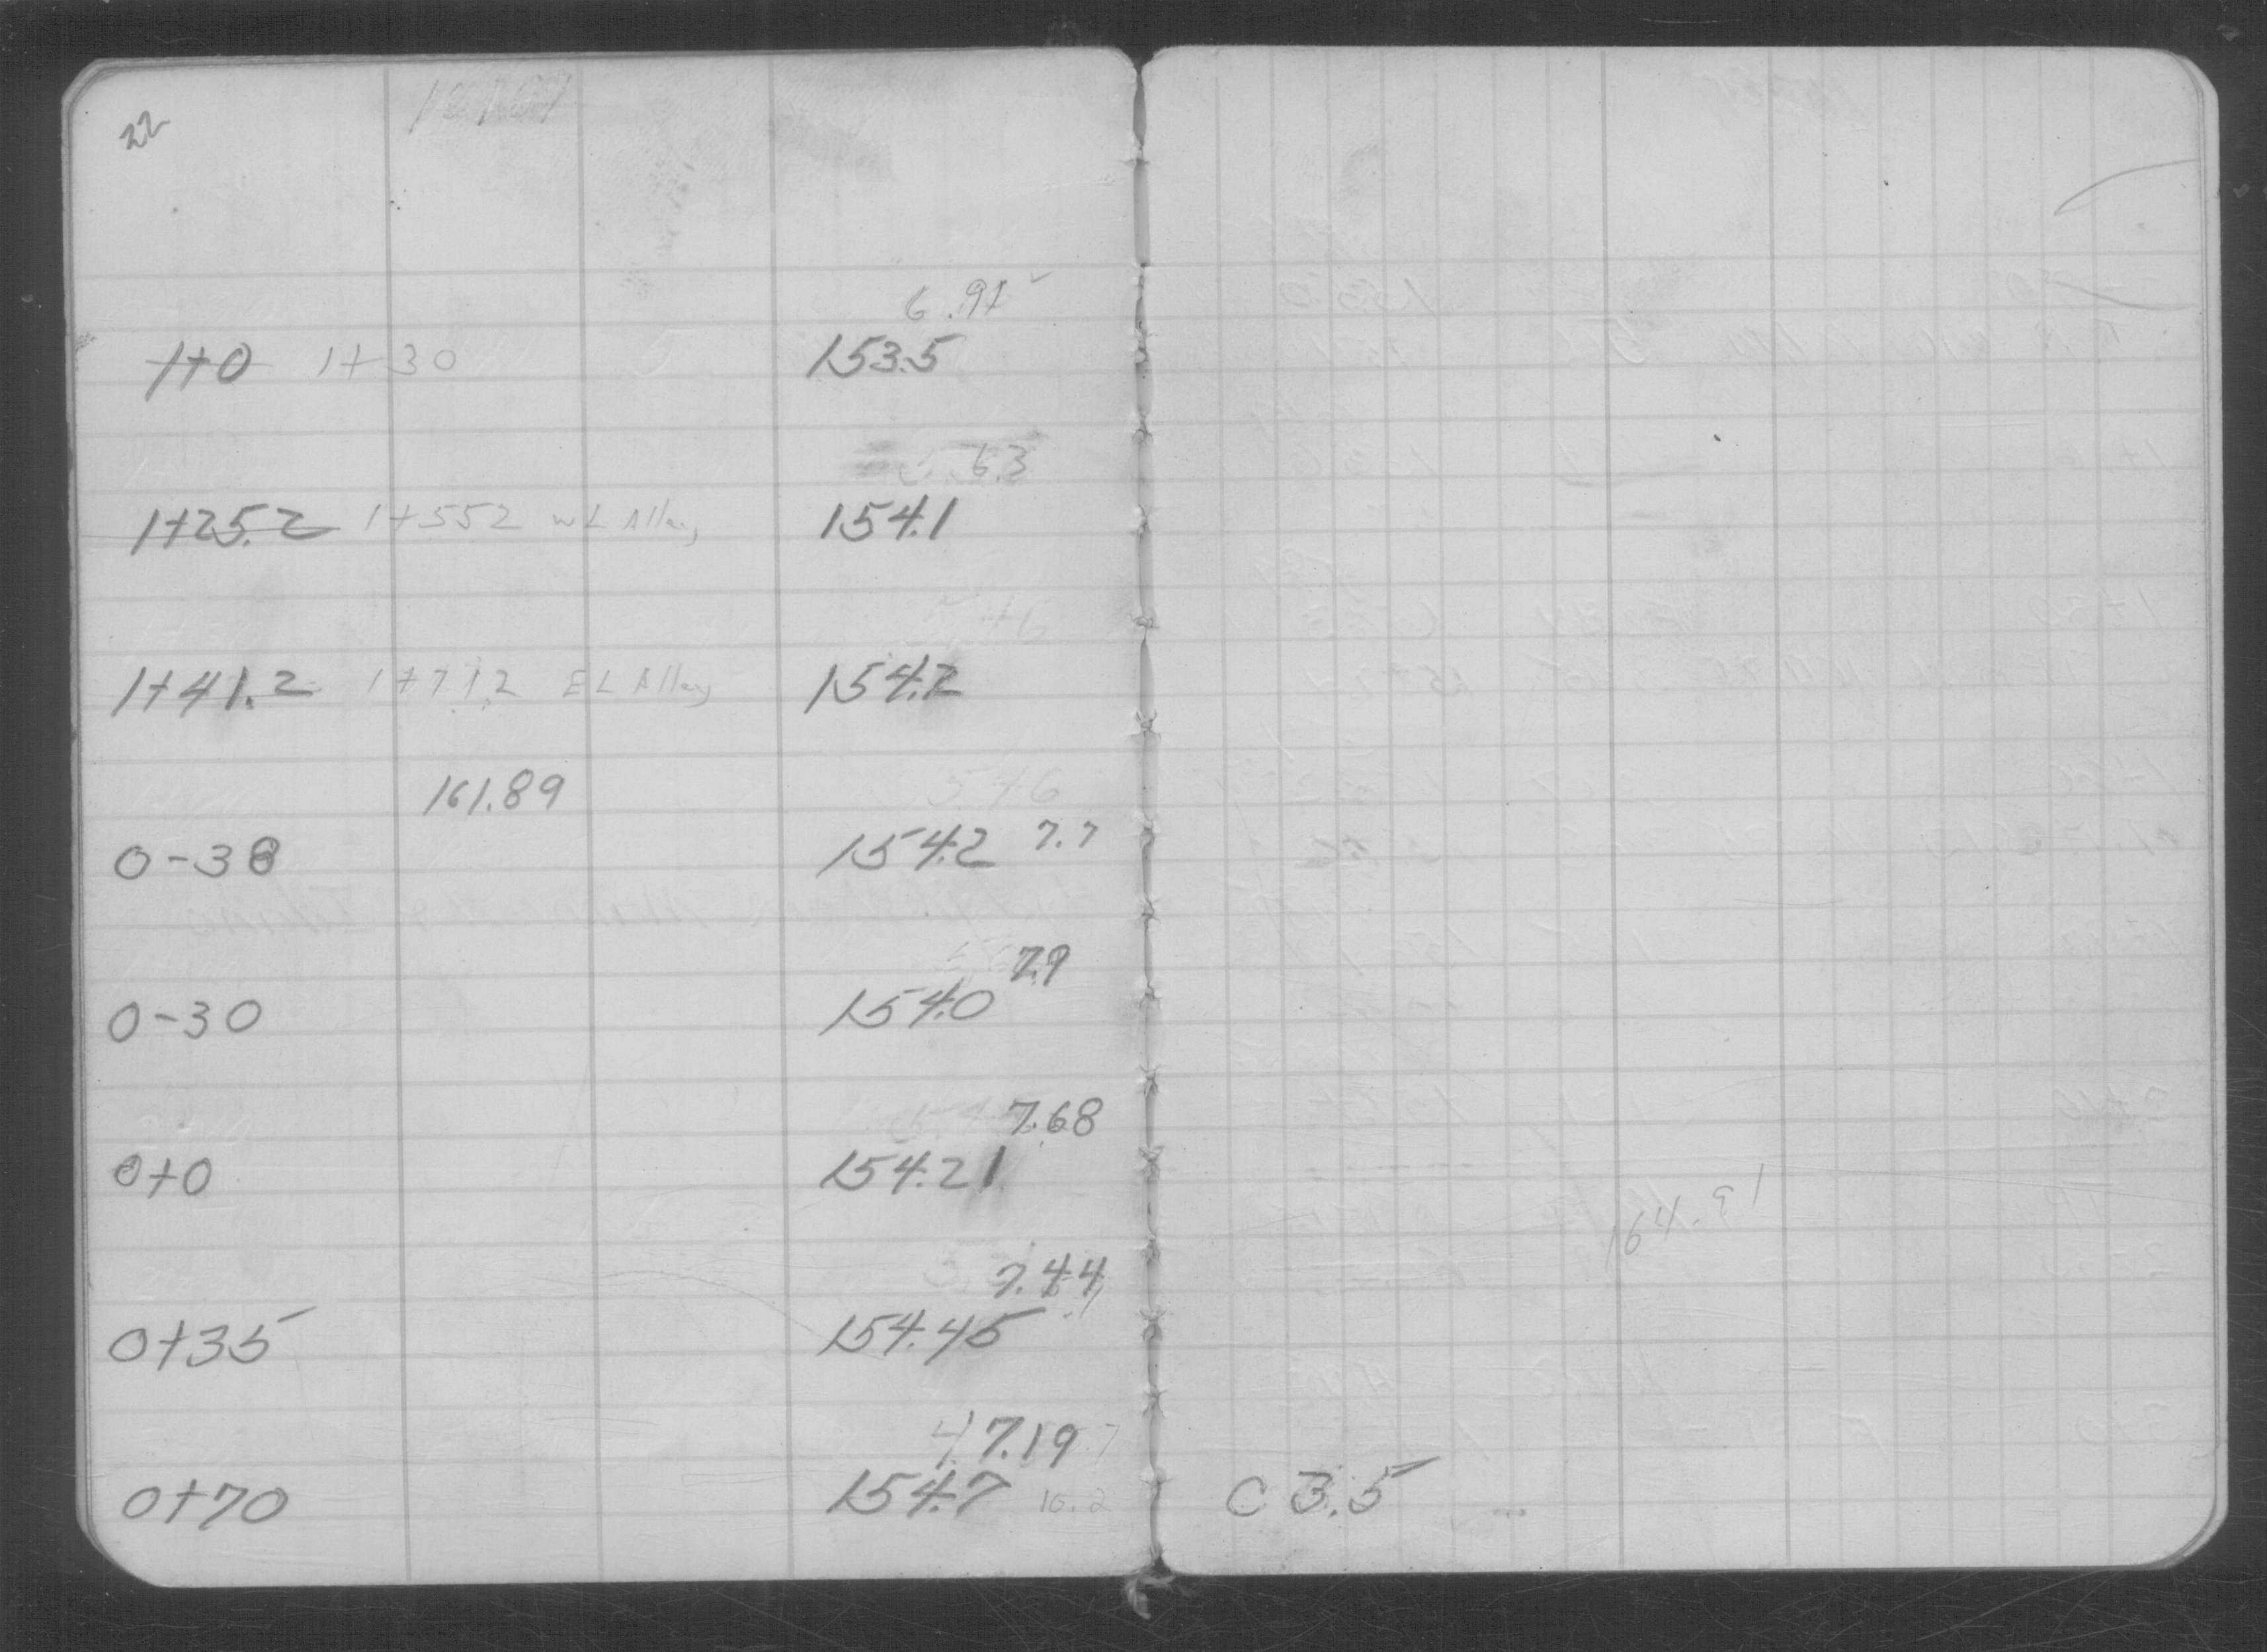 22
6.91
1+0 1+30 153.5
6.3
1+25.2 1+552 WL Alley 154.1
1+41.2 1+71.2 EL Alley 154.2
161.89 5.46
0-38 154.2 7.7
7.9
0-30 154.0
7.68
0+0 154.21
164.91
7.44
0+35 154.45
7.19
0+70 154.7 10.2 C 3.5